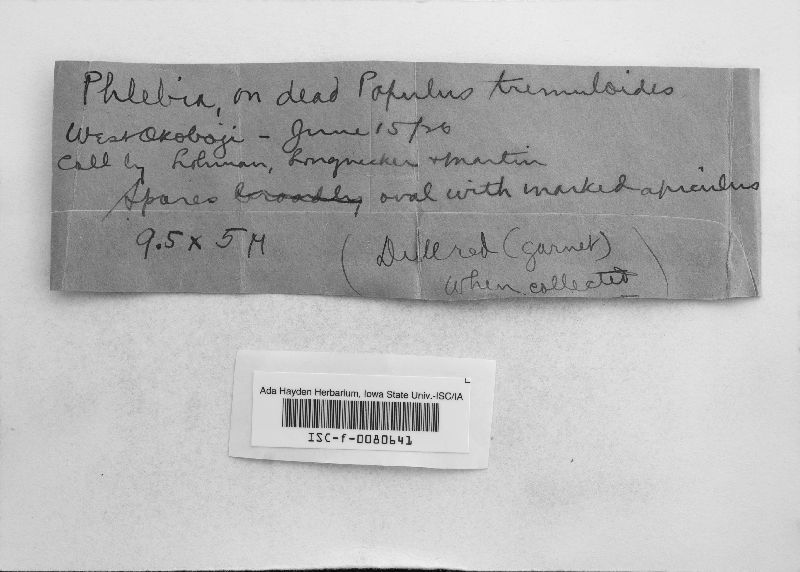 Phlebia, on dead Populus tremuloides
West Okoboji - June 15/26
Coll by Lohman, Longnecker + Martin
Spores broadly oval with marked apiculus
9.5 x 5 µ
(Dull red (garnet)
when collected)
Ada Hayden Herbarium, Iowa State Univ.-ISC/IA
ISC-f-0080641